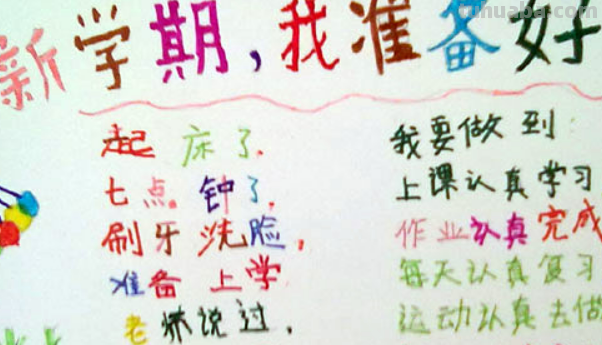 tuhuaba.com
新学期,我准备好
起床了.
七点.钟了.
刷牙洗脸,
准备上学
老师说过.
我要做到:
上课认真学习
作业认真完成
每天认真复习
运动认真去做